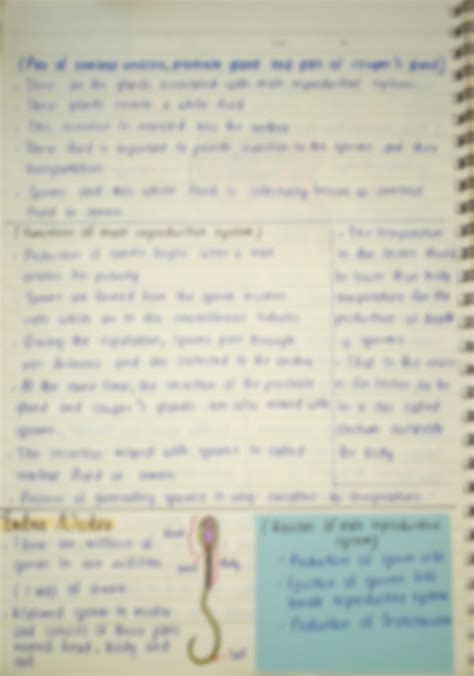 (Pair of seminal vesicles, prostate gland and pair of cowper's gland)
- These are the glands associated with male reproductive system.
- These glands secrete a white fluid
- This secretion is the urethra
- These fluid is important to provide nutrition to the sperms and their
transportation
- Sperms and this white fluid is collectively known as seminal
fluid or semen.
(Functions of male reproductive system)
- Production of sperms begins when a male
attains the puberty
- Sperms are formed from the sperm mother
cells which are in the seminiferous tubules
- During the ejaculation, sperms pass through
vas deferens and are collected to the urethra
- At the same time, the secretion of the prostate
gland and cowper's glands are also mixed with
sperms
- The secretion mixed with sperms is called
seminal fluid or semen
- Process of generating sperms is very sensitive to temperature.
- The temperature
in the testes should
be lower than body
temperature for the
production of
sperms
- That is the reason
for testes to be
in a sac called
scrotum outside
the body
Extra Notes
- There are millions of
sperms in one milliliter
(1 ml) of semen.
- sperm is motile
and consists of three parts
named head, body and
tail
Head
Body
Tail
(Function of male reproductive
system)
- Production of sperm cells
- Ejection of sperms into
female reproductive system
- Production of Testosterone